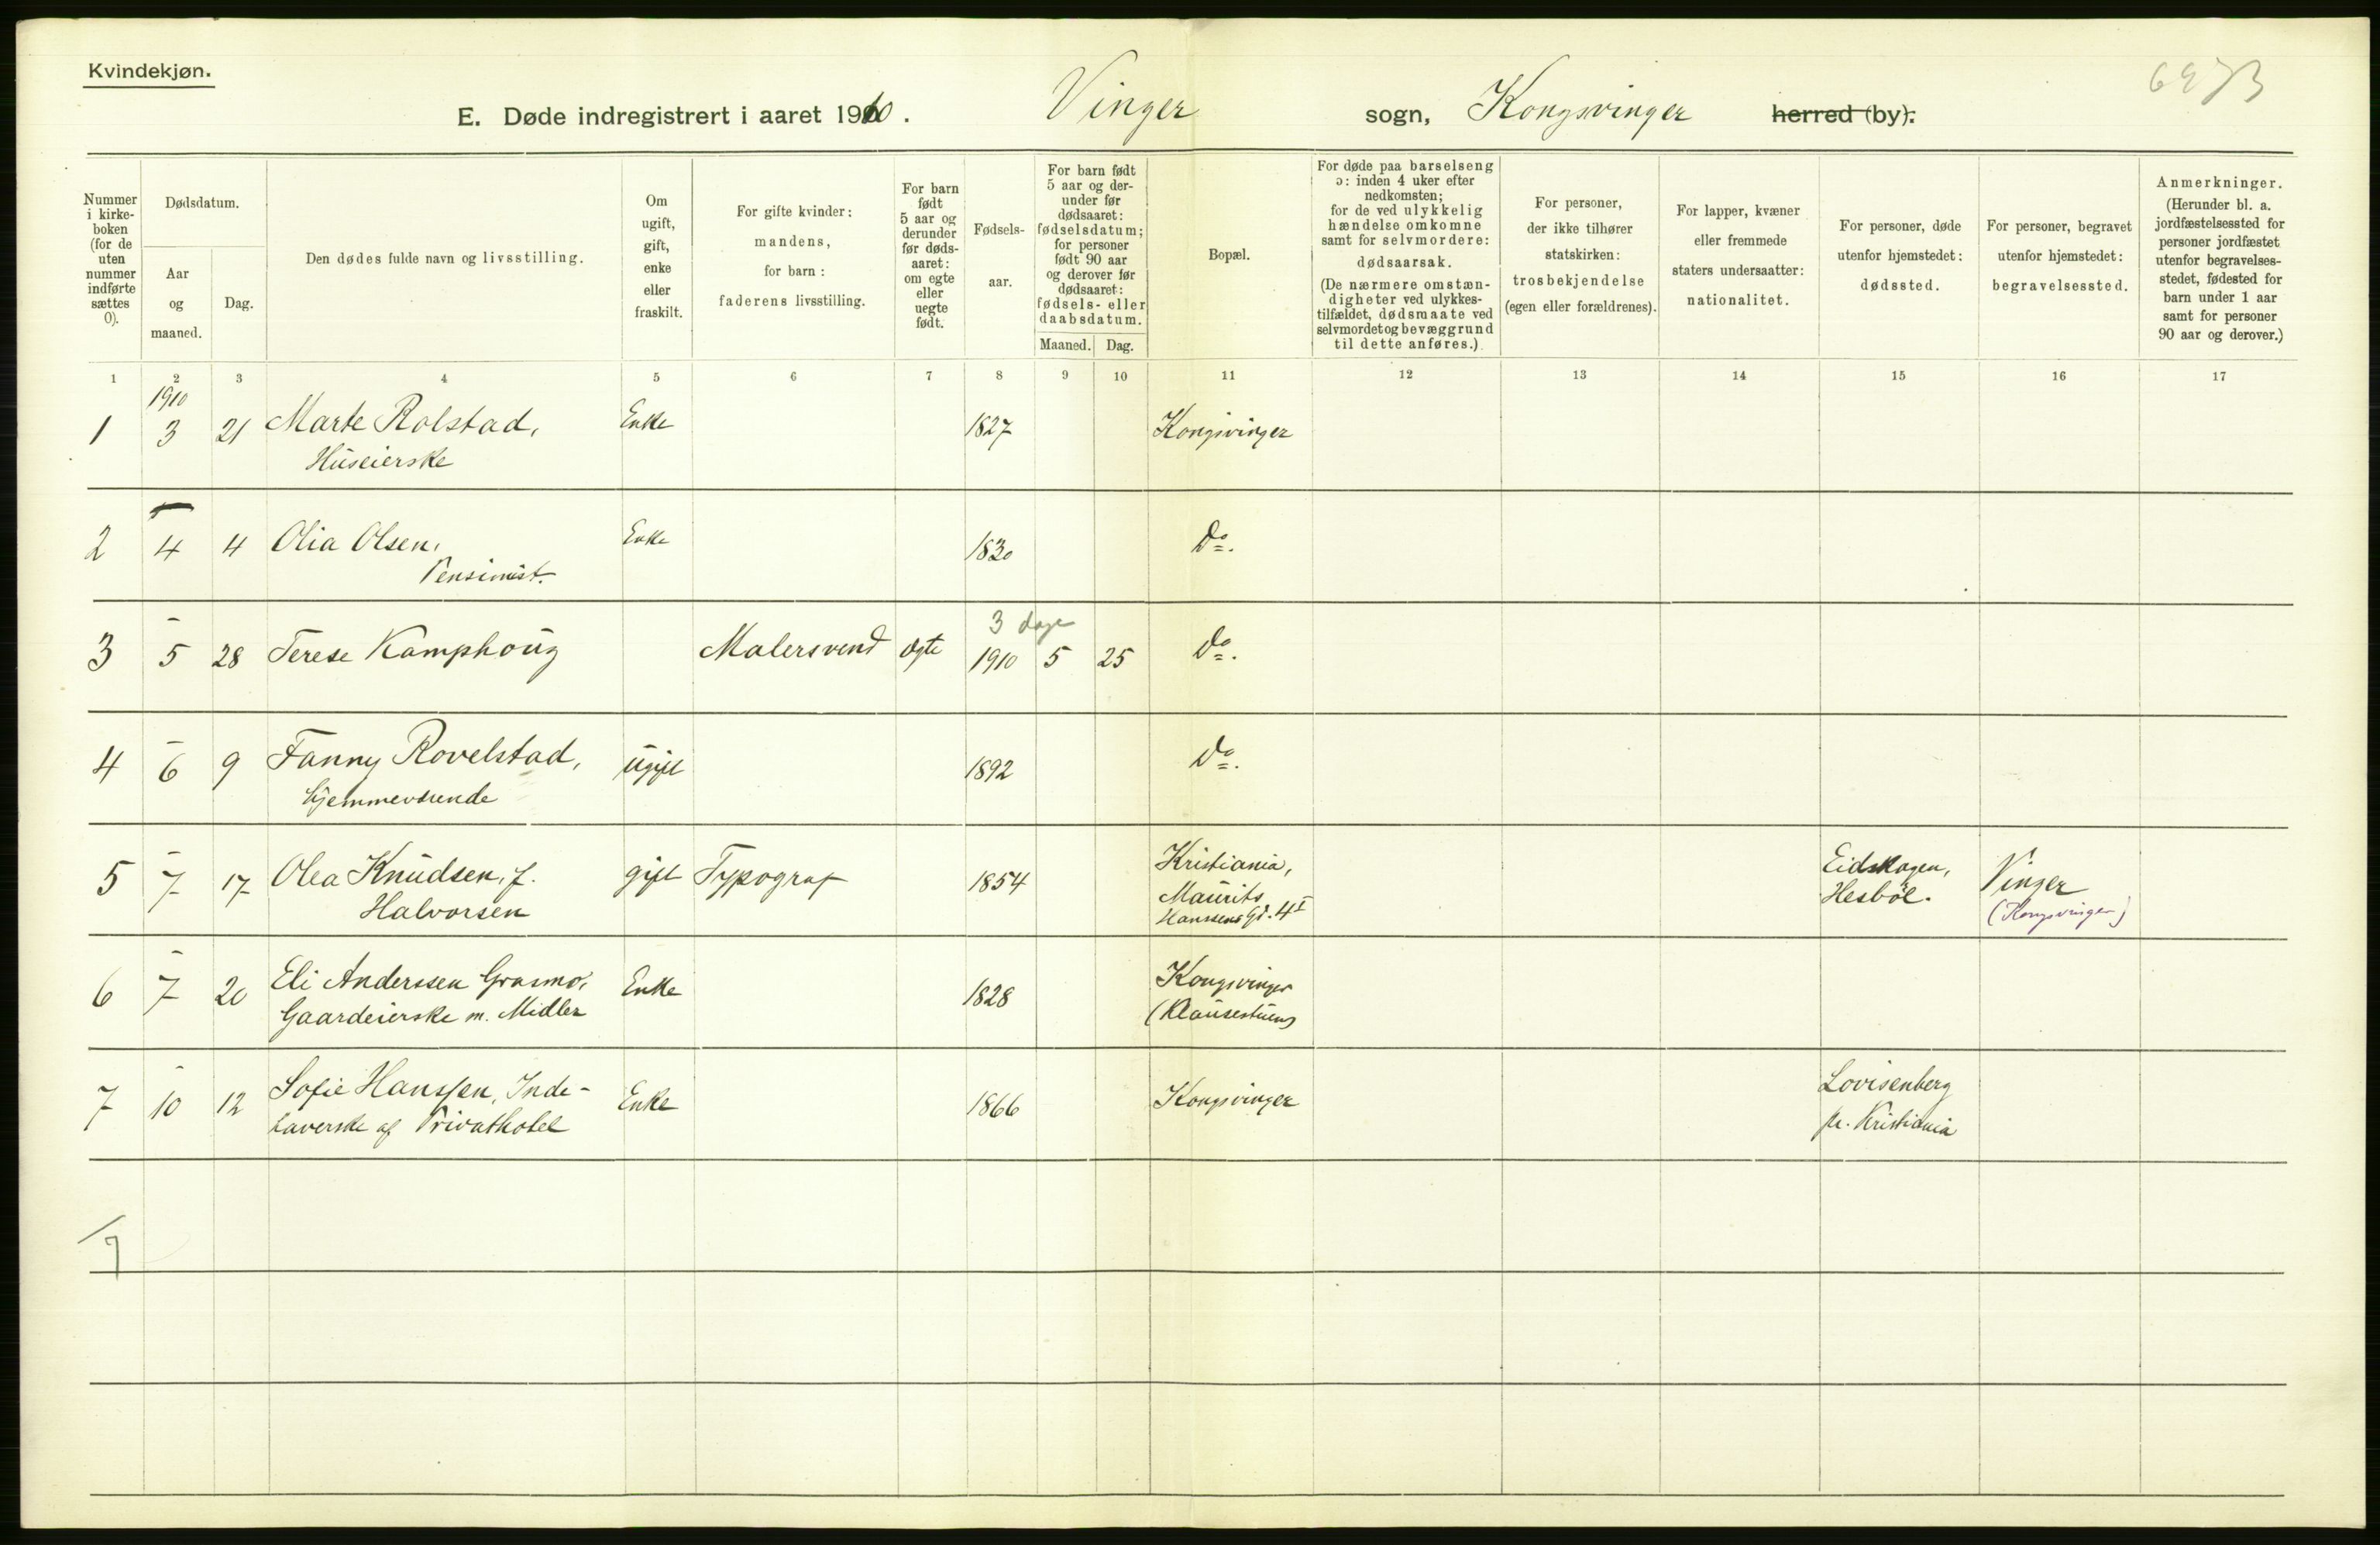 Kvindekjøn.
E. Døde indregistrert i aaret 1910. Vinger sogn, Kongsvinger herred (by).
Nummer i kirke- boken (for de uten nummer indførte sættes 0).
Dødsdatum.
Aar og maaned.
Dag.
Den dødes fulde navn og livsstilling.
Om ugift, gift, enke eller fraskilt.
For gifte kvinder: mandens, for barn: faderens livsstilling.
For barn født 5 aar og derunder før døds- aaret: om egte eller uegte født.
Fødsels- aar.
For barn født 5 aar og der- under før dødsaaret: fødselsdatum; for personer født 90 aar og derover før dødsaaret: fødsels- eller daabsdatum.
Maaned. Dag.
Bopæl.
For døde paa barselseng ɔ: inden 4 uker efter nedkomsten; for de ved ulykkelig hændelse omkomne samt for selvmordere: dødsaarsak. (De nærmere omstæn- digheter ved ulykkes- tilfældet, dødsmaate ved selvmord et og bevæggrund til dette anføres.)
For personer, der ikke tilhører statskirken: trosbekjendelse (egen eller forældrenes).
For lapper, kvæner eller fremmede staters undersaatter: nationalitet.
For personer, døde utenfor hjemstedet: dødssted.
For personer, begravet utenfor hjemstedet: begravelsessted.
Anmerkninger. (Herunder bl. a. jordfæstelsessted for personer jordfæstet utenfor begravelses- stedet, fødested for barn under 1 aar samt for personer 90 aar og derover.)
1 2 3 4 5 6 7 8 9 10 11 12 13 14 15 16 17
1910
1 3 21 Marte Rolstad, Enke 1827 Kongsvinger
Huseierske
2 4 4 Olia Olsen, Enke 1830 Do.
Pensionist.
3 dage
3 5 28 Terese Kamphoug Malersvend ægte 1910 5 25 Do.
4 6 9 Fanny Rovelstad, ugift 1892 Do.
hjemmeværende
5 7 17 Olea Knudsen, f. gift Typograf 1854 Kristiania, Eidskogen, Vinger
Halvorsen Maurits Hesböl. (Kongsvinger)
Hanssens Gd. 4 I
6 7 20 Eli Anderssen Grasmo, Enke 1828 Kongsvinger
Gaardeierske m. Midler (Klausestuen)
7 10 12 Sofie Hanssen, Inde- Enke 1866 Kongsvinger Lovisenberg
haverske af Privathotel pr. Kristiania
7